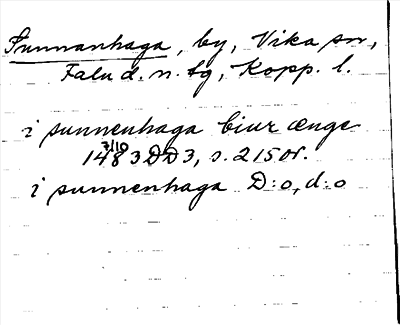 Sunnanhaga, by, Vika sn,
Falu d. n. tg, Kopp. l.
i sunnenhaga biur ænge
3/10
1483 DD3, s. 215 or.
i sunnenhaga D:o, d:o